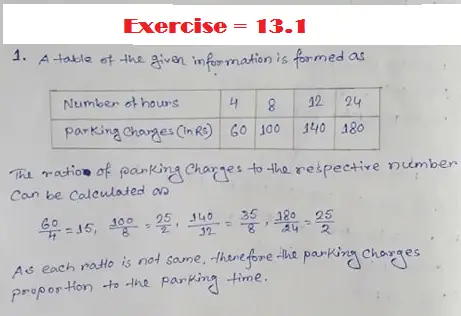 Exercise = 13.1
1. A table of the given information is formed as
Number of hours 4 8 12 24
Parking Charges (In Rs) 60 100 140 180
The ratio of parking Charges to the respective number
Can be Calculated as
60/4 = 15, 100/8 = 25/2, 140/12 = 35/8, 180/24 = 25/2
As each ratio is not same, therefore the parking Charges
proportion to the parking time.